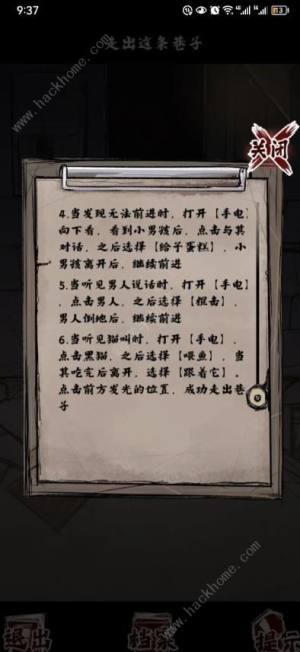 9:37
走出这条巷子
关闭
4.当发现无法前进时，打开【手电】
向下看，看到小男孩后，点击与其
对话，之后选择【给予蛋糕】，小
男孩离开后，继续前进
5.当听见男人说话时，打开【手电】
，点击男人，之后选择【棍击】，
男人倒地后，继续前进
6.当听见猫叫时，打开【手电】，
点击黑猫，之后选择【喂鱼】，当
其吃完后离开，选择【跟着它】。
点击前方发光的位置，成功走出巷
子
退出
档案
提示
www.hackhome.com
www.hackhome.com
www.hackhome.com